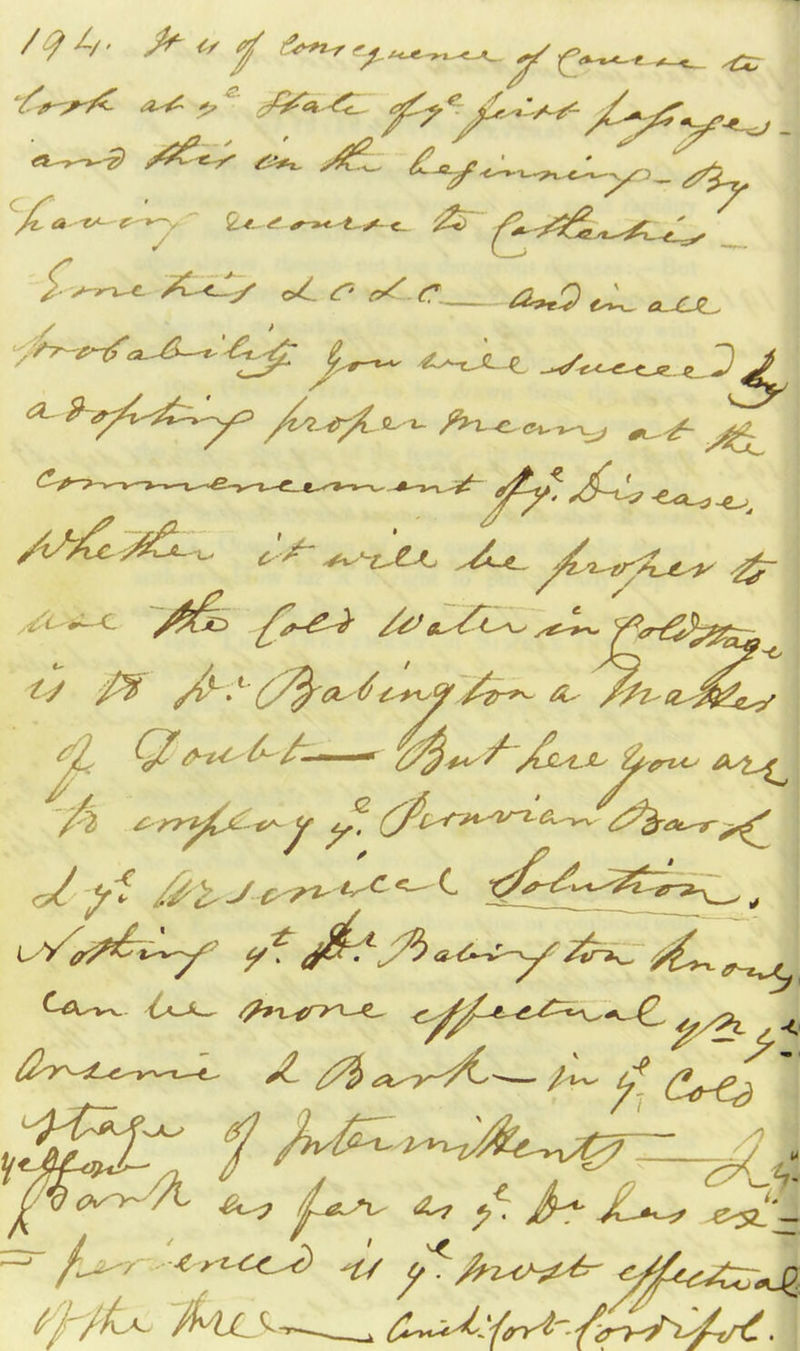 194. It is of Consequence of Course to
look at ye State of ye first passages –
and this in the beginning – By
having recourse to Cathartics –
Emetics &c &c — And in all
probability you will succeed by
adopting proper means at the
commencement of ye Disease.
Whether it will be proper to
use the Cold Water in Cold Stage
is to Dr. Babington a Matter
of Doubt — But here you are
to employ ye Peruvian Bark
& ye Arsenical Solution.
Nothing yt Dr. Babington knows
can be more effectual yn ye
Arsenic & Bark — in ye Cold
Stage of Intermittents — & ye
yellow
Bark as far as ye Dr has ex=
=perienced is ye most effectual
of the three —